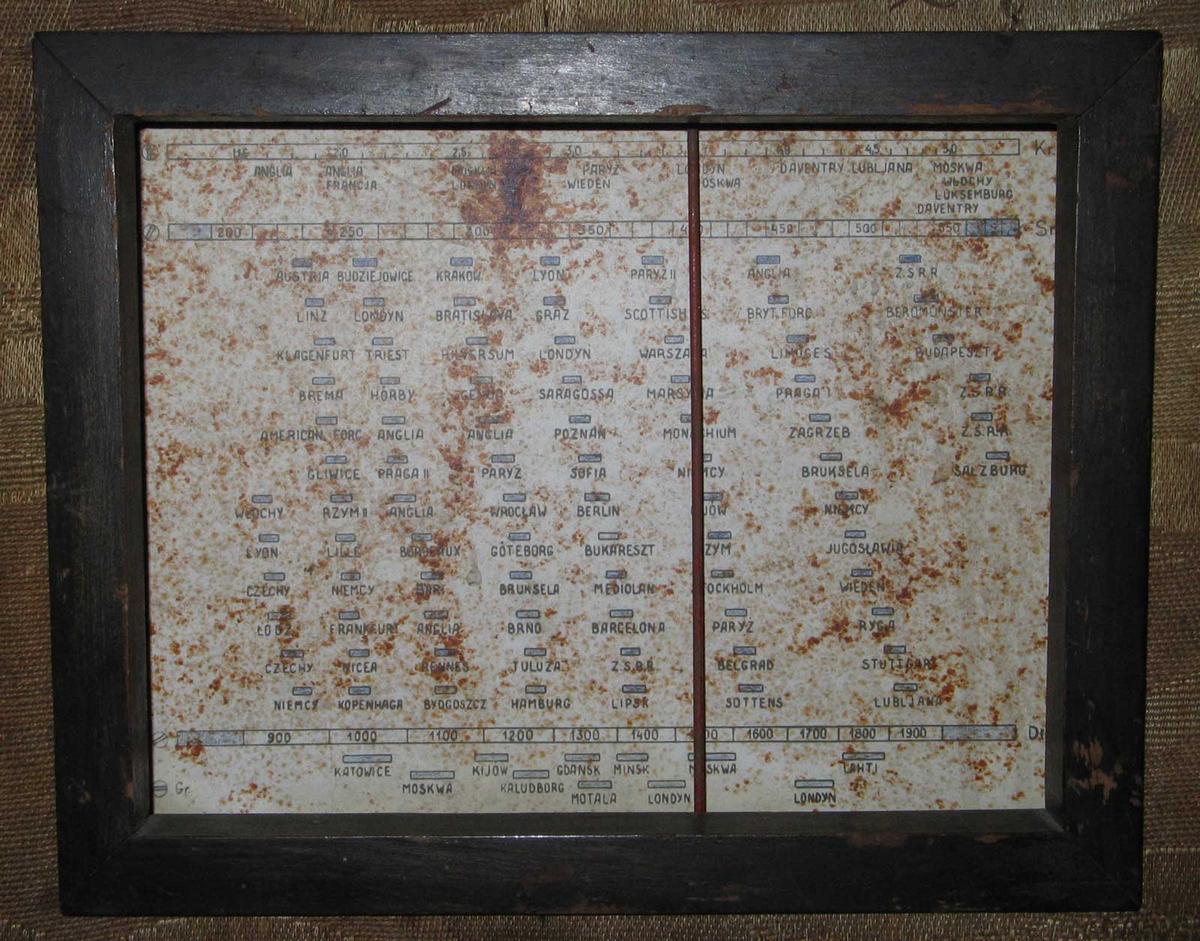 20 25 30 45 50 Kr
ANGLIA ANGLIA MOSKWA PARYŻ DAVENTRY LUBLJANA MOSKWA
FRANCJA WIEDEŃ WŁOCHY
LUKSEMBURG
DAVENTRY
200 250 300 350 450 500 550
AUSTRIA BUDZIEJOWICE KRAKÓW LYON PARYŻ II ANGLIA Z.S.R.R
LINZ LONDYN BRATISLAVA GRAZ SCOTTISH BRYT. FORC BEROMÜNSTER
KLAGENFURT TRIEST HILVERSUM LONDYN WARSZAWA LIMOGES BUDAPESZT
BREMA HÖRBY GENUA SARAGOSSA MARSYLIA PRAGA I Z.S.R.R
AMERICAN. FORC ANGLIA ANGLIA POZNAŃ MONACHIUM ZAGRZEB Z.S.R.R
GLIWICE PRAGA II PARYŻ SOFIA NIEMCY BRUKSELA SALZBURG
WŁOCHY RZYM II ANGLIA WROCŁAW BERLIN NIEMCY
LYON LILLE BORDEAUX GÖTEBORG BUKARESZT RZYM JUGOSŁAWIA
CZECHY NIEMCY BARI BRUKSELA MEDIOLAN STOCKHOLM WIEDEŃ
ŁÓDŹ FRANKFURT ANGLIA BRNO BARCELONA PARYŻ RYGA
CZECHY NICEA RENNES TULUZA Z.S.R.R. BELGRAD STUTTGART
NIEMCY KOPENHAGA BYDGOSZCZ HAMBURG LIPSK SOTTENS LUBLJANA
900 1000 1100 1200 1300 1400 1600 1700 1800 1900
KATOWICE KIJÓW GDAŃSK MIŃSK MOSKWA LAHTI
Gr. MOSKWA KALUDBORG MOTALA LONDYN LONDYN